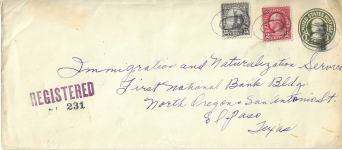 Immigration and Naturalization Service
First National Bank Bldg.
North Oregon & San Antonio St.
El Paso
Texas
REGISTERED
231